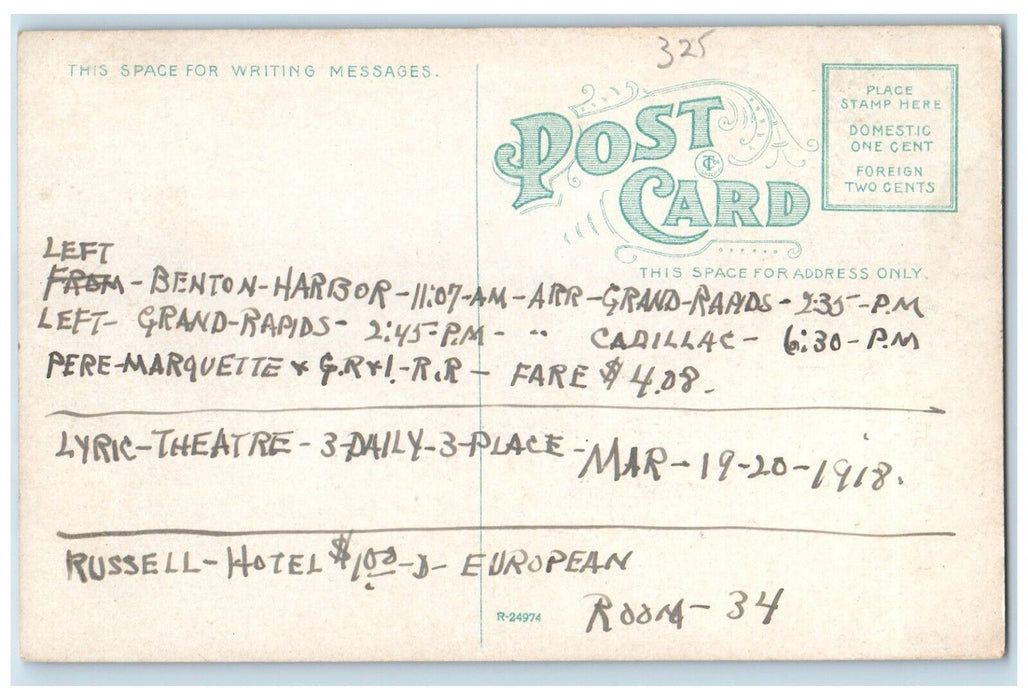 325
THIS SPACE FOR WRITING MESSAGES.
POST
CARD
PLACE
STAMP HERE
DOMESTIC
ONE CENT
FOREIGN
TWO CENTS
THIS SPACE FOR ADDRESS ONLY.
LEFT
FROM - BENTON-HARBOR - 11:07-AM - ARR - GRAND-RAPIDS - 2:35-P.M
LEFT - GRAND-RAPIDS - 2:45-P.M - " CADILLAC - 6:30-P.M
PERE-MARQUETTE & G.R&I.-R.R - FARE $4.08.
LYRIC-THEATRE - 3-DAILY-3-PLACE - MAR-19-20-1918.
RUSSELL-HOTEL $1.00-D- EUROPEAN
ROOM-34
R-24974